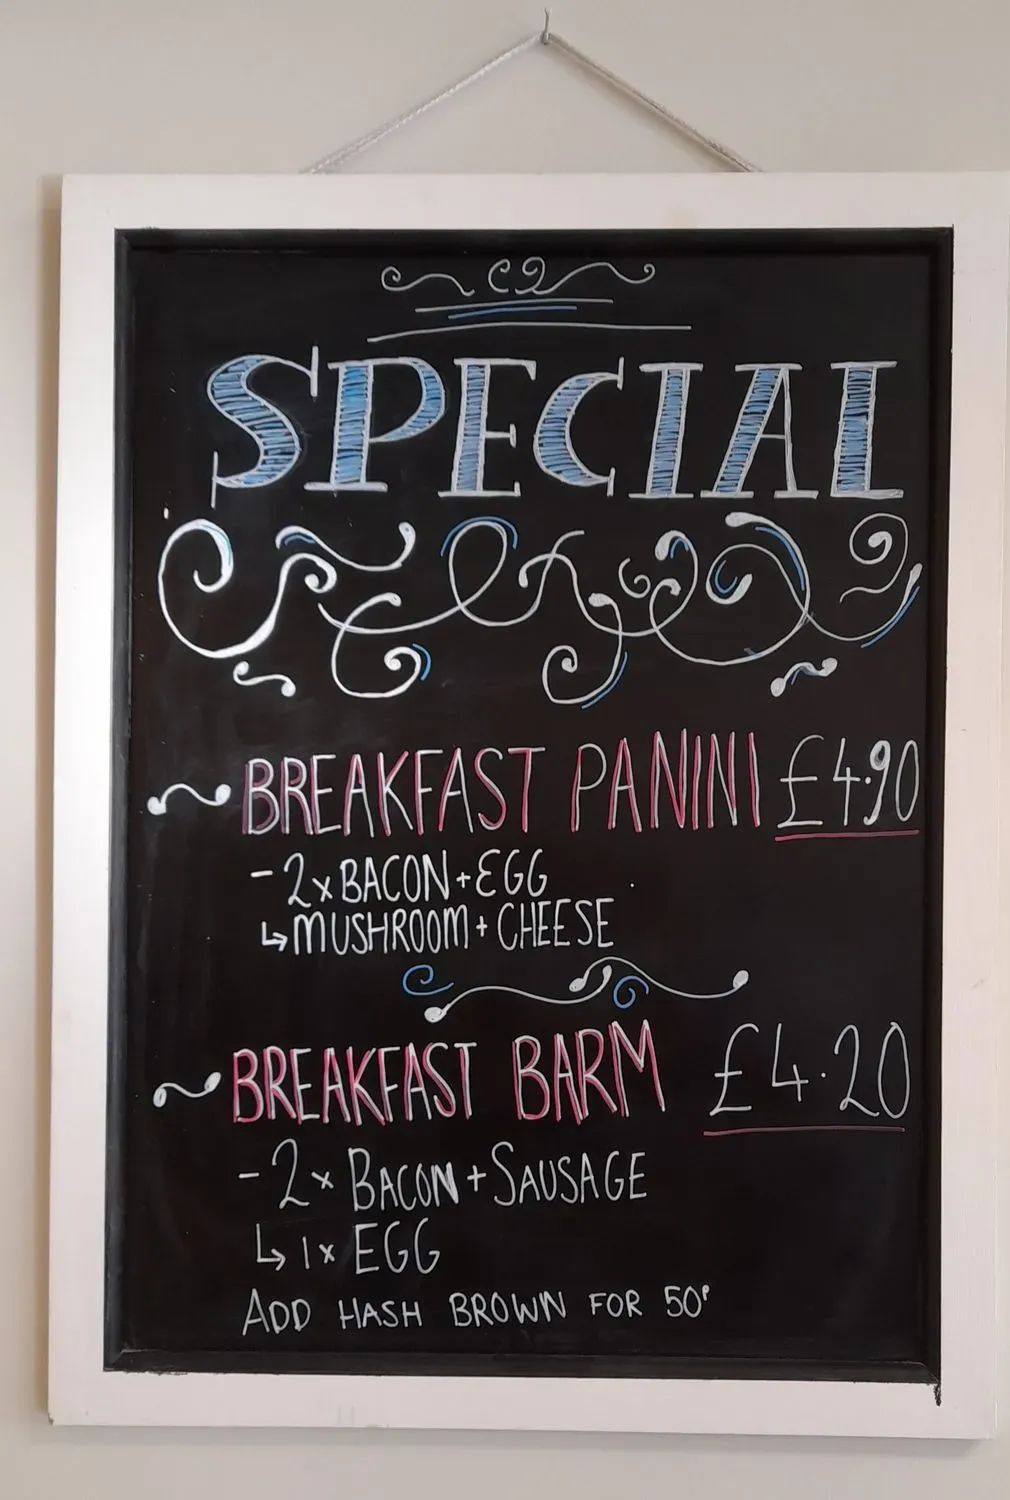 SPECIAL
BREAKFAST PANINI £4.90
- 2x BACON + EGG
↳ MUSHROOM + CHEESE
BREAKFAST BARM £4.20
- 2x BACON + SAUSAGE
↳ 1x EGG
ADD HASH BROWN FOR 50P